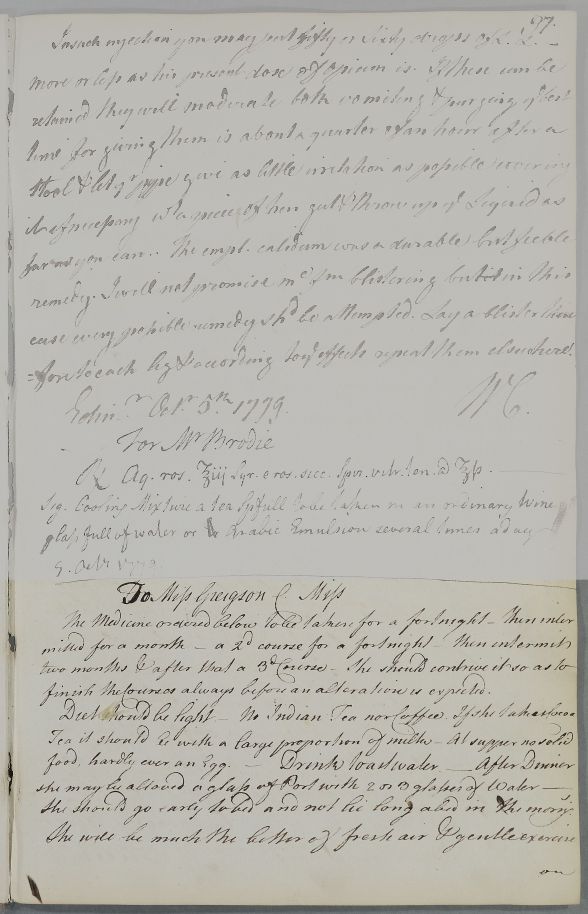 27.
In such injection you may put fifty or sixty drops of L. L. –
more or less as his present dose of opium is. If these can be
retained they will moderate both vomiting & purging. ye best
time for giving them is about a quarter of an hour after a
stool & let yr pipe give as little irritation as possible covering
it if necessary wt a piece of hen gut & throw up ye Liquid as
far as you can. The empl. calidum was a durable but feeble
remedy. I will not promise much from blistering but in this
case every possible remedy shd be attempted. Lay a blister there
=fore to each leg & according to ye effects repeat them elsewhere.
Edinr. Octr. 5th 1779. WC.
For Mr Brodie
℞ Aq. ros. ℥iij Syr. e ros. sicc. Spir. vitr. ten. a ℥ſs.
Sig. Cooling Mixture a tea spfull to be taken in an ordinary Wine
glass full of water or Arabic Emulsion several times a day
9. Octr. 1779.
Do Miss Greigson C. Miss
The Medicine ordered below to be taken for a fortnight – then inter
mitted for a month – a 2d course for a fortnight – then intermitt
two months & after that a 3d Course – She should contrive it so as to
finish the courses always before an alteration is expected.
Diet should be light – No Indian Tea nor Coffee. If she takes Cocoa
Tea it should be with a large proportion of milk – At supper no solid
food, hardly ever an Egg. – Drink toast water – After Dinner
she may be allowed a glass of Port with 2 or 3 glasses of Water –
She should go early to bed and not lie long abed in the morng.
She will be much the better of fresh air & gentle exercise
on